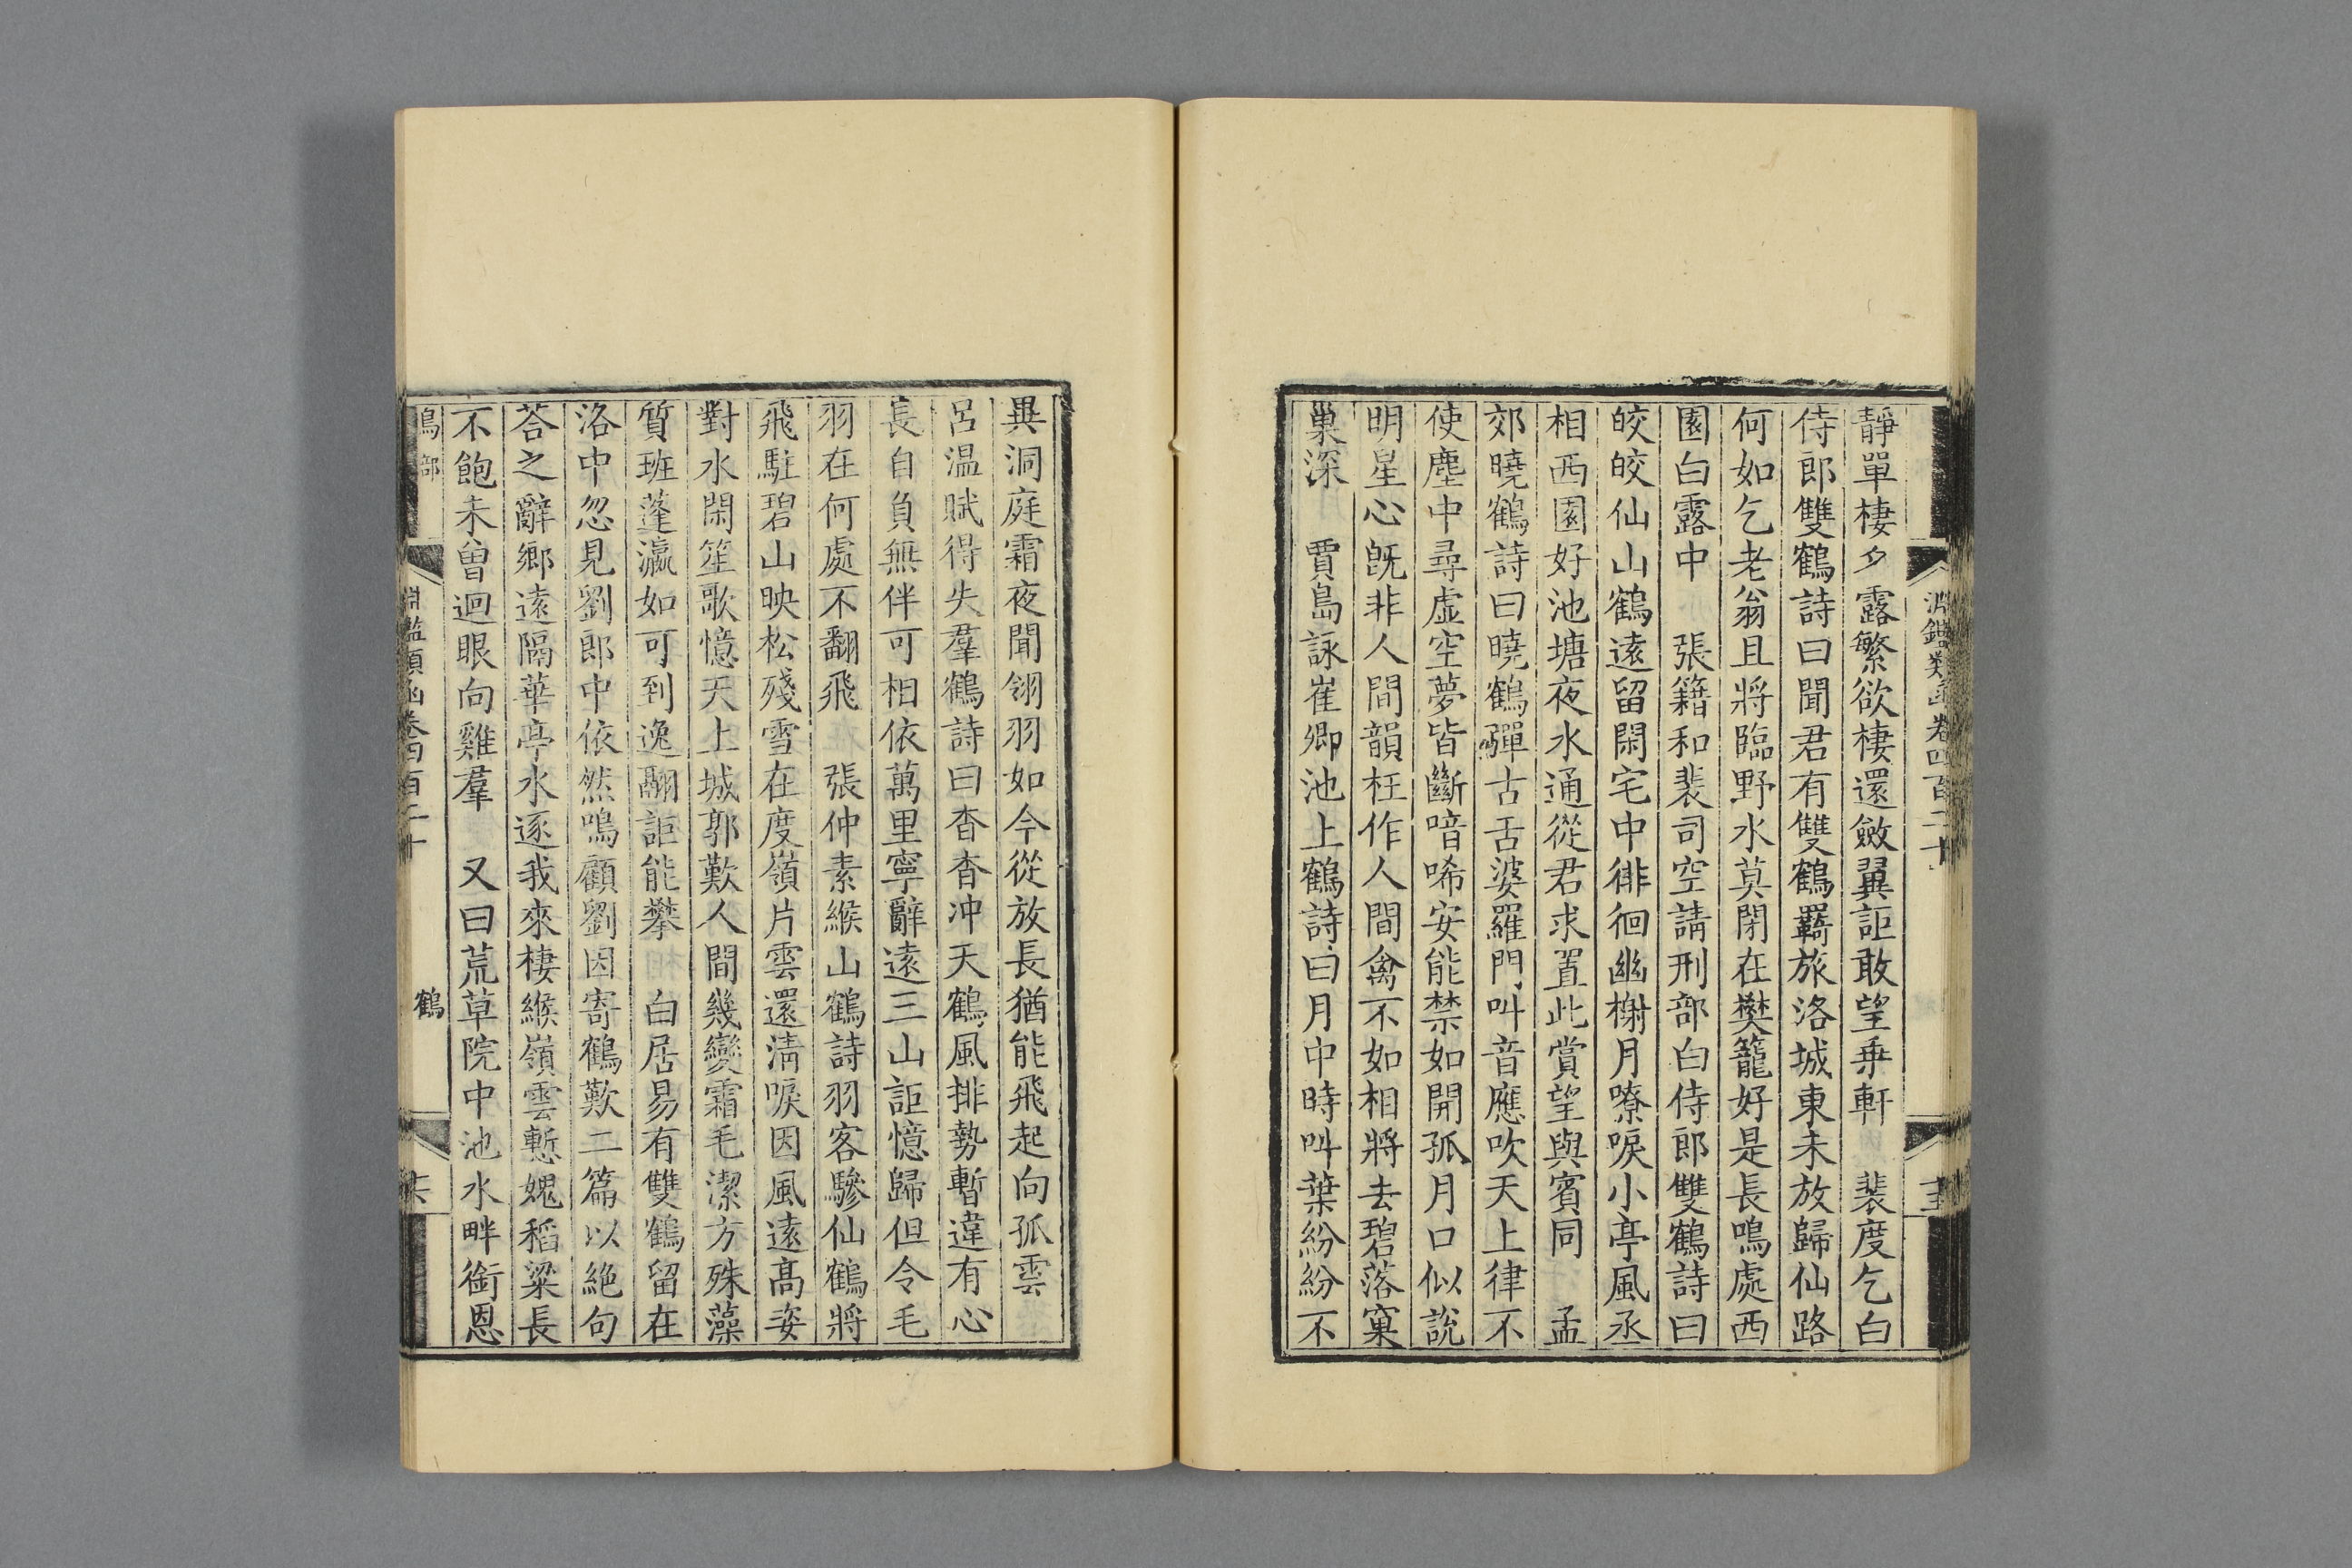 淵鑑類函卷四百二十
靜單棲夕露繁欲棲還斂翼詎敢望乗軒　裴度乞白
侍郎雙鶴詩曰聞君有雙鶴羈旅洛城東未放歸仙路
何如乞老翁且將臨野水莫閉在樊籠好是長鳴處西
園白露中　張籍和裴司空請刑部白侍郎雙鶴詩曰
皎皎仙山鶴遠留閑宅中徘徊幽榭月嘹唳小亭風丞
相西園好池塘夜水通從君求置此賞望與賓同　孟
郊曉鶴詩曰曉鶴彈古舌婆羅門叫音應吹天上律不
使塵中尋虛空夢皆斷喑唏安能禁如開孤月口似說
明星心旣非人間韻枉作人間禽不如相將去碧落窠
巢深　賈島詠崔卿池上鶴詩曰月中時叫葉紛紛不
異洞庭霜夜聞翎羽如今從放長猶能飛起向孤雲
呂温賦得失羣鶴詩曰杳杳冲天鶴風排勢暫違有心
長自負無伴可相依萬里寧辭遠三山詎憶歸但令毛
羽在何處不翻飛　張仲素緱山鶴詩羽客驂仙鶴將
飛駐碧山映松殘雪在度嶺片雲還淸唳因風遠高姿
對水閑笙歌憶天上城郭歎人間幾變霜毛潔方殊藻
質班蓬瀛如可到逸翮詎能攀　白居易有雙鶴留在
洛中忽見劉郎中依然鳴顧劉因寄鶴歎二篇以絶句
荅之辭鄉遠隔華亭水逐我來棲緱嶺雲慙媿稻粱長
不飽未曽迴眼向雞羣　又曰荒草院中池水畔銜恩
鳥部
卷四百二十
鶴